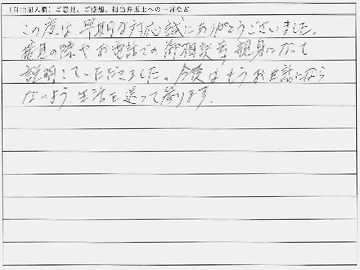 (自由記入欄) ご意見、ご感想、担当弁護士への一言など
この度は早期な対応誠にありがとうございました。
意見の際やお電話での御相談等親身になって
説明していただきました。今後はもうお世話になら
ないよう生活を送って参ります